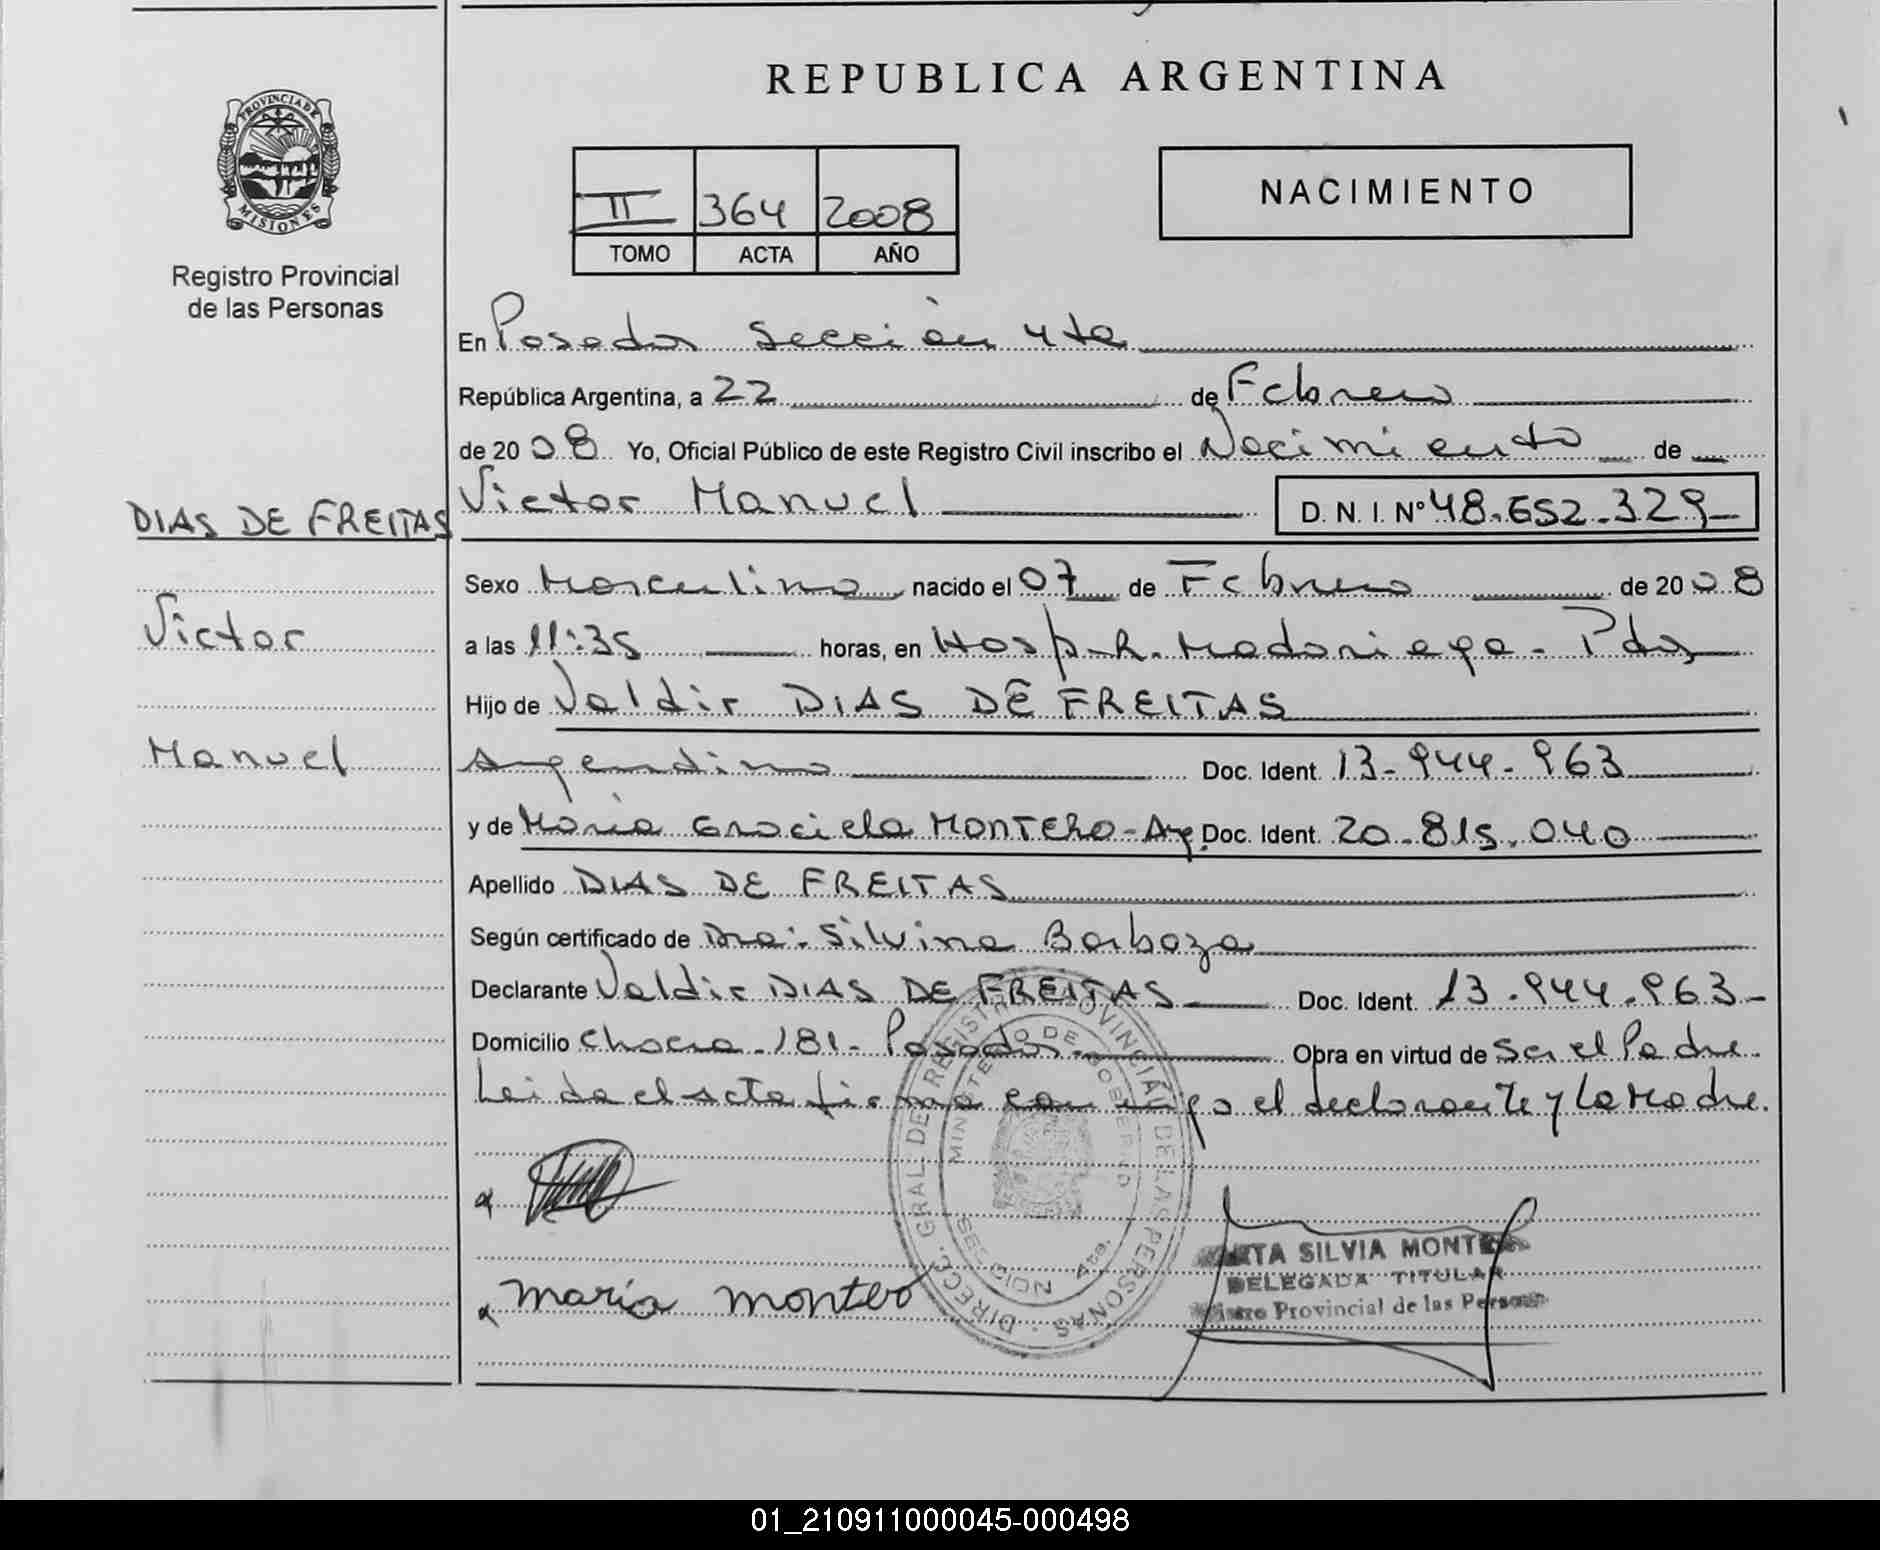 REPUBLICA ARGENTINA
PROVINCIA DE MISIONES
Registro Provincial
de las Personas
II 364 2008
TOMO ACTA AÑO
NACIMIENTO
En Posadas Sección 4ta
República Argentina, a 22 de Febrero
de 2008 Yo, Oficial Público de este Registro Civil inscribo el Nacimiento de
DIAS DE FREITAS
Victor Manuel D.N.I. Nº 48.652.329
Sexo Masculino nacido el 07 de Febrero de 2008
Victor
a las 11:35 horas, en Hosp. R. Madariaga - Pdas
Hijo de Valdir DIAS DE FREITAS
Manuel
Argentino Doc. Ident. 13.944.963
y de María Graciela MONTERO - Arg. Doc. Ident. 20.815.040
Apellido DIAS DE FREITAS
Según certificado de Dra. Silvina Barboza
Declarante Valdir DIAS DE FREITAS Doc. Ident. 13.944.963
Domicilio Chacra 181 - Posadas Obra en virtud de Ser el Padre.
Leida el acta firma conmigo el declarante y la Madre.
DIRECC. GRAL. DEL REGISTRO PROVINCIAL DE LAS PERSONAS
MINISTERIO DE GOBIERNO
SECCION 4ta.
María Montero
SILVIA MONTE
DELEGADA TITULAR
Provincial de las Personas
01_210911000045-000498